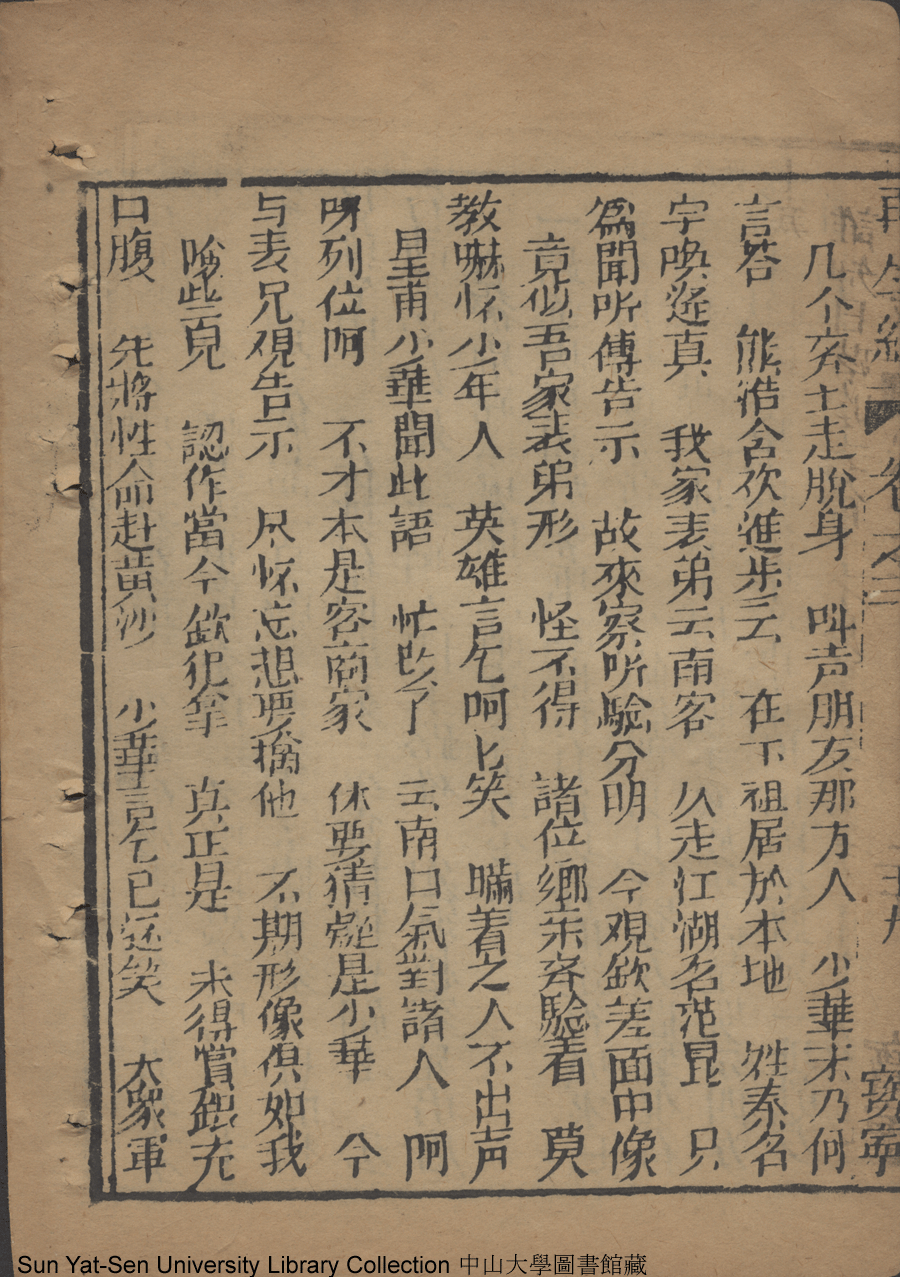 再生緣 卷之三
几个卒士走脫身 叫声朋友那方人 少華未乃何
言答 熊浩含欢進步云 在下祖居於本地 姓秦名
字喚遜真 我家表弟云南客 久走江湖名范昆 只
爲聞听傳告示 故來察听驗分明 今观欽差面中像
竟似吾家表弟形 怪不得 諸位鄉亲齐驗着 莫
教嚇怀少年人 英雄言乞呵匕笑 瞞着之人不出声
皇甫少華聞此語 忙改了 云南口氣對諸人 阿
呀列位阿 不才本是客商家 休要猜疑是少華 今
与表兄观告示 尽怀忘想要擒他 不期形像俱如我
險些見 認作當今欽犯拿 真正是 未得賞銀充
口腹 先將性命赴黄沙 少華言乞已还笑 大衆軍
Sun Yat-Sen University Library Collection 中山大學圖書館藏